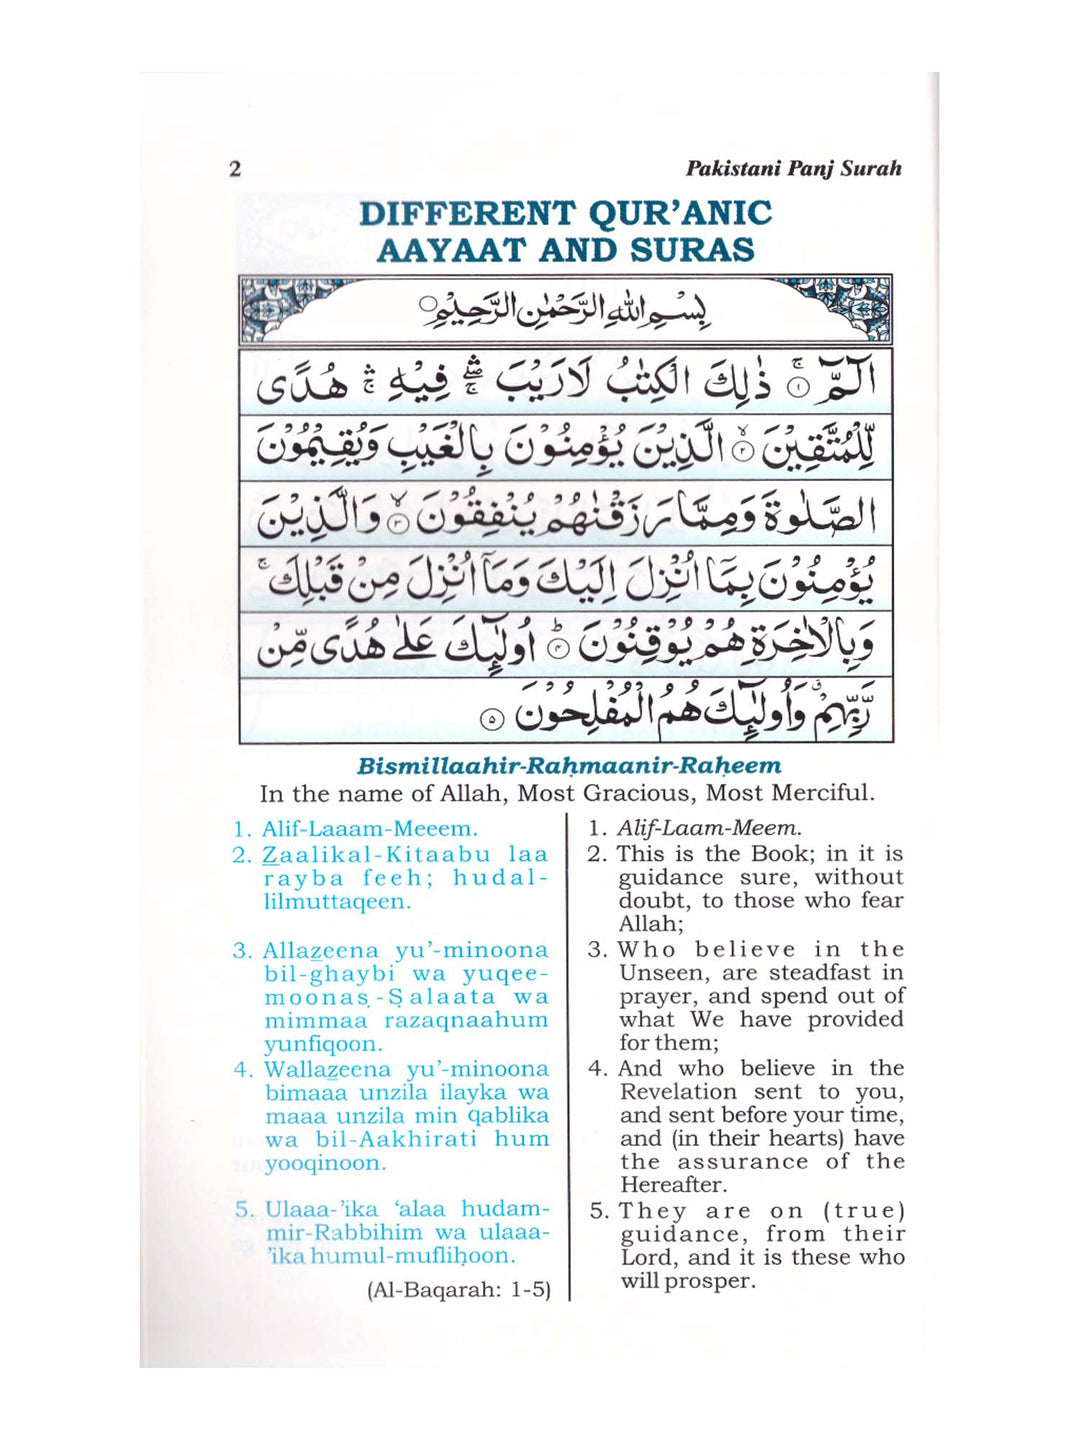 2
Pakistani Panj Surah
DIFFERENT QUR’ANIC
AAYAAT AND SURAS
بِسْمِ اللهِ الرَّحْمٰنِ الرَّحِيْمِ ○
الٓمّٓ ۚ ۱ ذٰلِكَ الْكِتٰبُ لَا رَيْبَ ۛۖ فِيْهِ ۛۚ هُدًى
لِّلْمُتَّقِيْنَ ۙ ۲ الَّذِيْنَ يُؤْمِنُوْنَ بِالْغَيْبِ وَيُقِيْمُوْنَ
الصَّلٰوةَ وَمِمَّا رَزَقْنٰهُمْ يُنْفِقُوْنَ ۙ ۳ وَالَّذِيْنَ
يُؤْمِنُوْنَ بِمَآ اُنْزِلَ اِلَيْكَ وَمَآ اُنْزِلَ مِنْ قَبْلِكَ ۚ
وَبِالْاٰخِرَةِ هُمْ يُوْقِنُوْنَ ؕ ۴ اُولٰٓئِكَ عَلٰى هُدًى مِّنْ
رَّبِّهِمْ ۗ وَاُولٰٓئِكَ هُمُ الْمُفْلِحُوْنَ ۵
Bismillaahir-Raḥmaanir-Raḥeem
In the name of Allah, Most Gracious, Most Merciful.
1. Alif-Laaam-Meeem.
2. Z̲aalikal-Kitaabu laa
rayba feeh; hudal-
lilmuttaqeen.
3. Allaz̲eena yu’-minoona
bil-ghaybi wa yuqee-
moonaṣ-Ṣalaata wa
mimmaa razaqnaahum
yunfiqoon.
4. Wallaz̲eena yu’-minoona
bimaaa unzila ilayka wa
maaa unzila min qablika
wa bil-Aakhirati hum
yooqinoon.
5. Ulaaa-’ika ‘alaa hudam-
mir-Rabbihim wa ulaaa-
’ika humul-mufliḥoon.
(Al-Baqarah: 1-5)
1. Alif-Laam-Meem.
2. This is the Book; in it is
guidance sure, without
doubt, to those who fear
Allah;
3. Who believe in the
Unseen, are steadfast in
prayer, and spend out of
what We have provided
for them;
4. And who believe in the
Revelation sent to you,
and sent before your time,
and (in their hearts) have
the assurance of the
Hereafter.
5. They are on (true)
guidance, from their
Lord, and it is these who
will prosper.